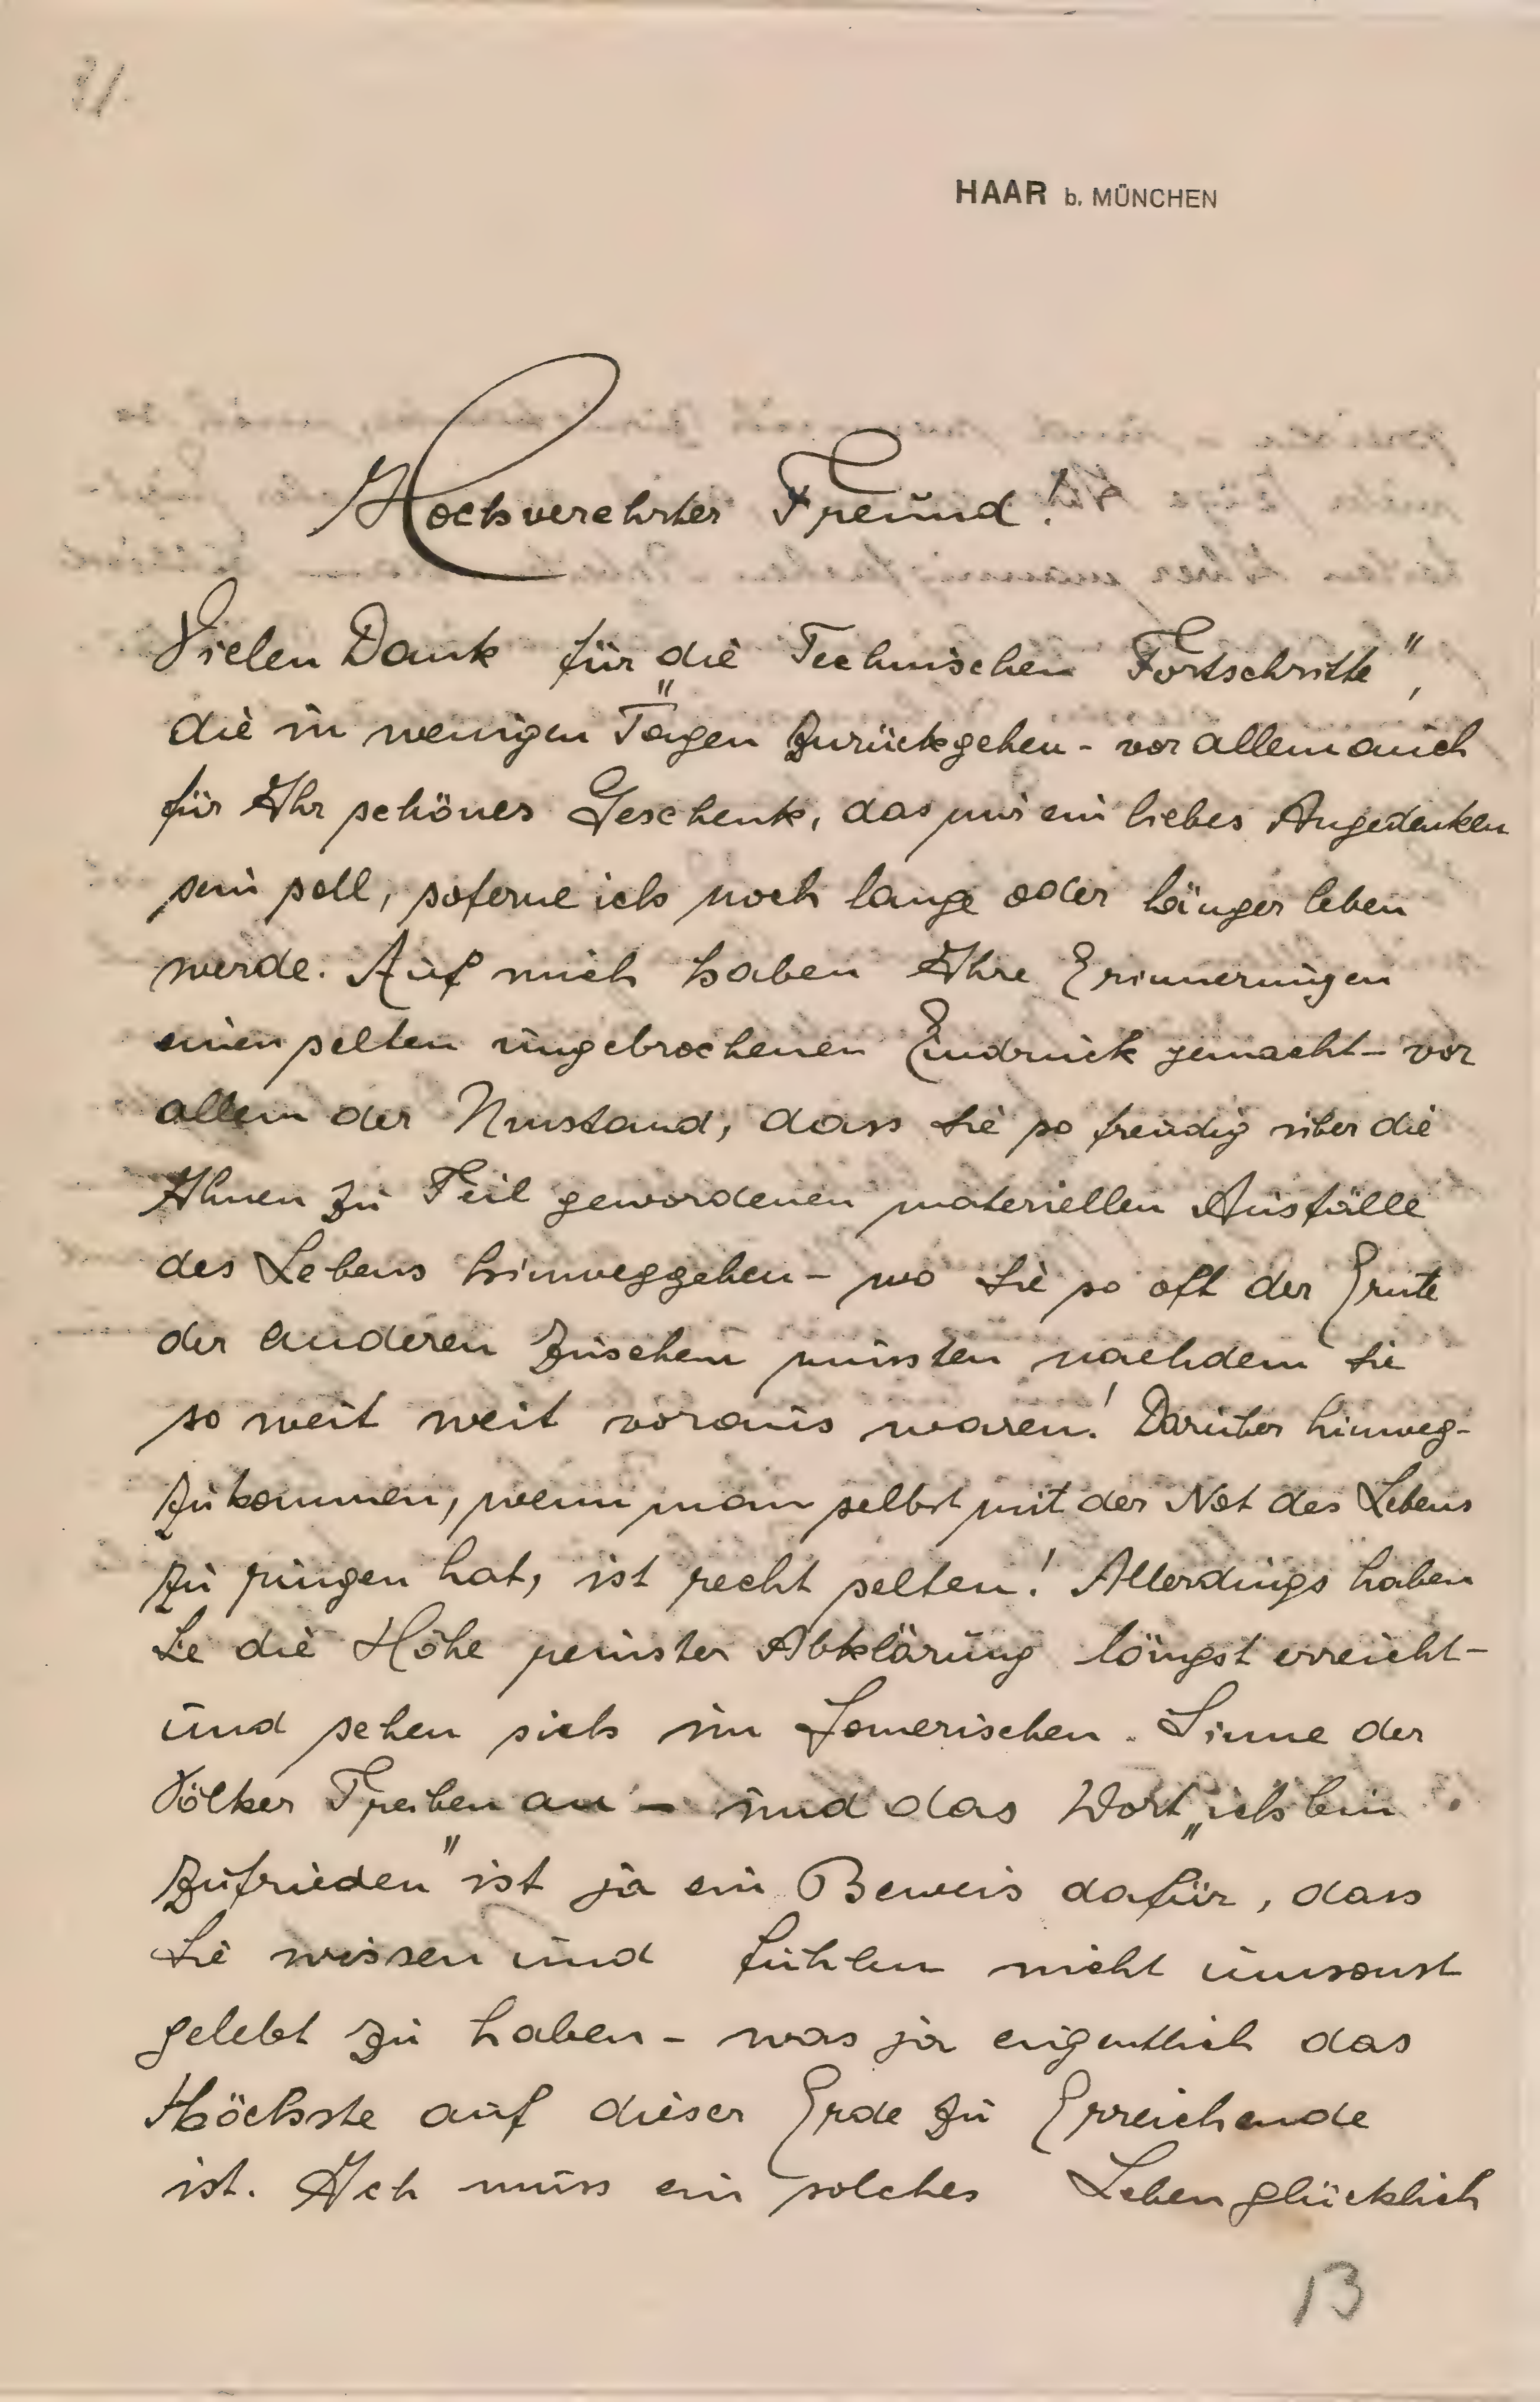 HAAR b. MÜNCHEN
Hochverehrter Freund!
Vielen Dank für „die Technischen Fortschritte",
die in wenigen Tagen zurückgehen - vor allem auch
für Ihr schönes Geschenk, das mir ein liebes Angedenken
sein soll, soferne ich noch lange oder länger leben
werde. Auf mich haben Ihre Erinnerungen
einen selten ungebrochenen Eindruck gemacht - vor
allem der Umstand, dass Sie so freudig über die
Ihnen zu Teil gewordenen materiellen Ausfälle
des Lebens hinweggehen - wo Sie so oft der Ernte
der anderen zusehen mussten nachdem Sie
so weit weit voraus waren! Darüber hinweg-
zukommen, wenn man selbst mit der Not des Lebens
zu ringen hat, ist recht selten! Allerdings haben
Sie die Höhe reinster Abklärung längst erreicht -
und sehen sich im Homerischen Sinne der
Völker Treiben an - und das Wort „ich bin
zufrieden" ist ja ein Beweis dafür, dass
Sie wissen und fühlen nicht umsonst
gelebt zu haben - was ja eigentlich das
Höchste auf dieser Erde zu Erreichende
ist. Ich muss ein solches Leben glücklich
13